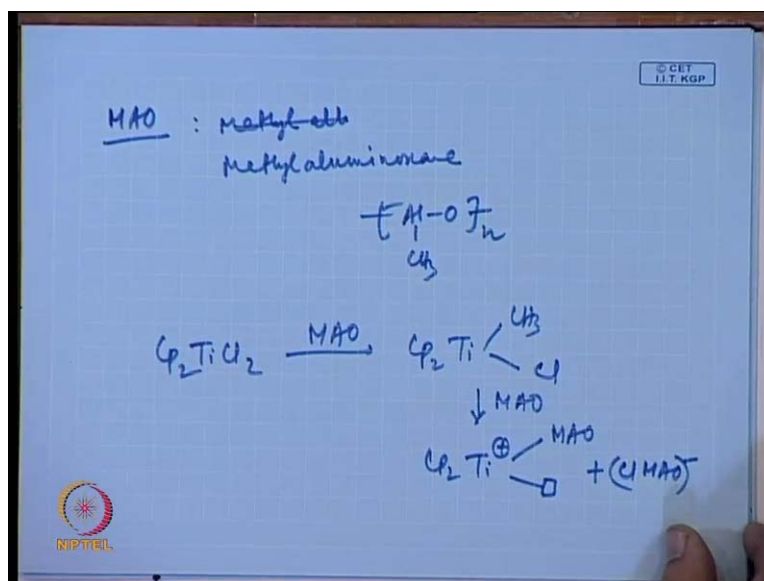 © CET
I.I.T. KGP
MAO : Methyl alu
Methylaluminoxane
[Al-O]n
CH3
Cp2TiCl2 MAO Cp2 Ti CH3
Cl
MAO
Cp2 Ti⊕ MAO
+ (Cl MAO)-
NPTEL